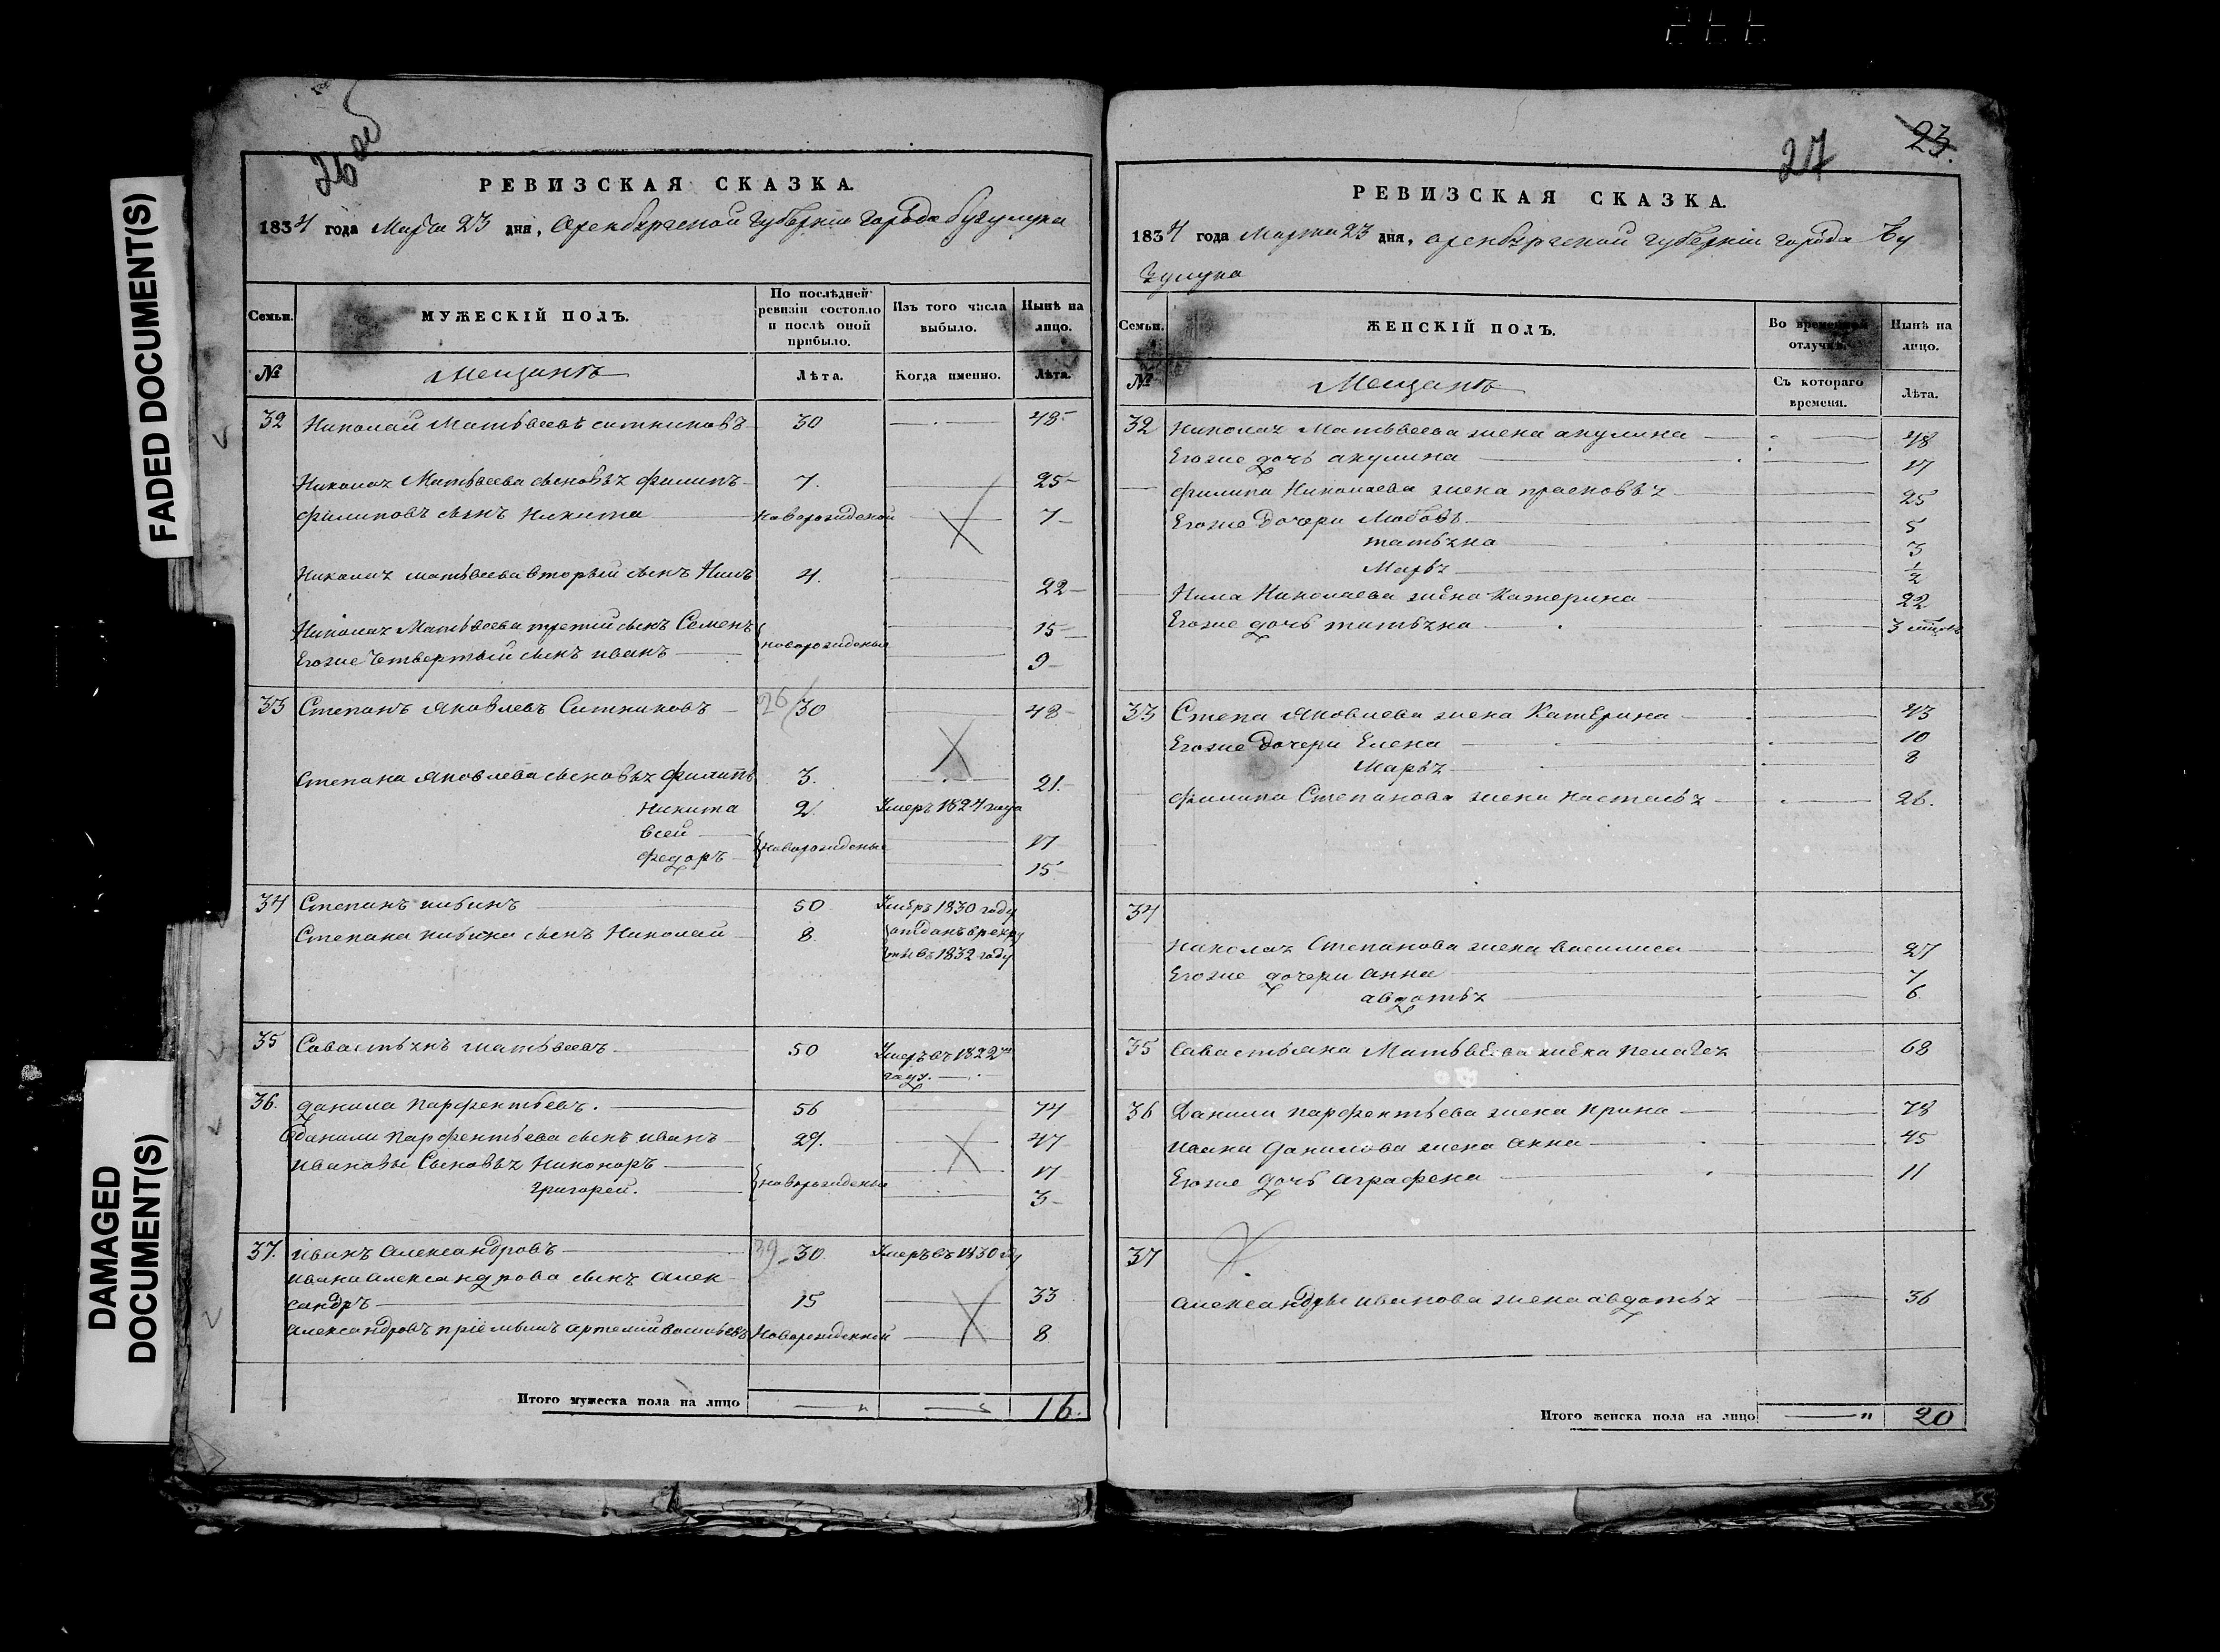 FADED DOCUMENT(S)
DAMAGED
DOCUMENT(S)
26 об
РЕВИЗСКАЯ СКАЗКА.
1834 года Марта 23 дня, Оренбургской губернии города Бузулука
Семьи. МУЖЕСКІЙ ПОЛЪ. По послѣдней ревизіи состояло и послѣ оной прибыло. Изъ того числа выбыло. Нынѣ на лицо.
№ Мещанъ Лѣта. Когда именно. Лѣта.
32 Николай Матвѣевъ Ситниковъ 30 48
Николая Матвѣева сыновья филипъ 7. 25
филиповъ сынъ Никита Новорожденой 7
Николая матвѣева вторый сынъ Нилъ 4. 22
Николая Матвѣева третій сынъ Семенъ 15
новорожденыя
Егоже Четвертый сынъ иванъ 9
33 Степанъ Яковлевъ Ситниковъ 26/30 48
Степана Яковлева сыновья филипъ 3. 21.
Никита 2. Умеръ 1824 года
17
Новорожденые
федоръ 15
34 Степанъ 50 Умеръ 1830 году
Степана сынъ Николай 8. отданъ в рекру
ты въ 1832 году
35 Савастьянъ матвѣевъ 50 Умеръ въ 1822
году.
36. данила парфентьевъ. 56 74
данили парфентьева сынъ иванъ 29. 47
ивановы Сыновья Никоноръ 17
новорожденыя
григорей. 3
37. иванъ александровъ 39 30. Умеръ въ 1830 ду
ивана александрова сынъ алек
сандръ 15 33
александровъ пріемышъ артемий Новорожденной 8
Итого мужеска пола на лицо 16.
27 23.
РЕВИЗСКАЯ СКАЗКА.
1834 года Марта 23 дня, оренбургской губерніи города Бу
зулука
Семьи. ЖЕНСКІЙ ПОЛЪ. Во временной отлучкѣ. Нынѣ на лицо.
№ Мещанъ Съ котораго времени. Лѣта.
32 Николая Матвѣева жена акулина 48
Егоже дочь акулина 17
филипа Николаева жена прасковья 25
Егоже Дочери Любовь 5
татьяна 3
Марья ½
Нила Николаева жена Катерина 22
Егоже дочь татьяна 3
33 Степа Яковлева жена Катерина 43
Егоже Дочери Елена 10
Марья 8
филипа Степанова жена настасья 26.
34
Николая Степанова жена василиса 27
Егоже дочери анна 7
авдотья 6.
35 Савастьяна Матвѣева жена пелагея 68
36 Данили парфентьева жена Ирина 78
ивана Данилова жена анна 45
Егоже дочь аграфена 11
37
александры иванова жена авдотья 36
Итого женска пола на лицо 20